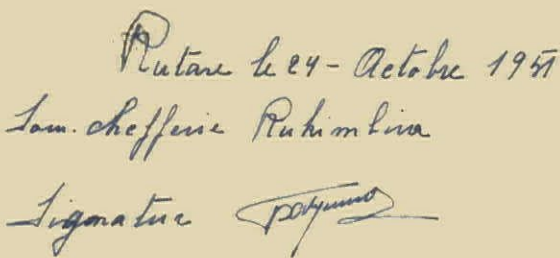 Rutare le 24 - Octobre 1951
Sous. chefferie Ruhimbira
Signature